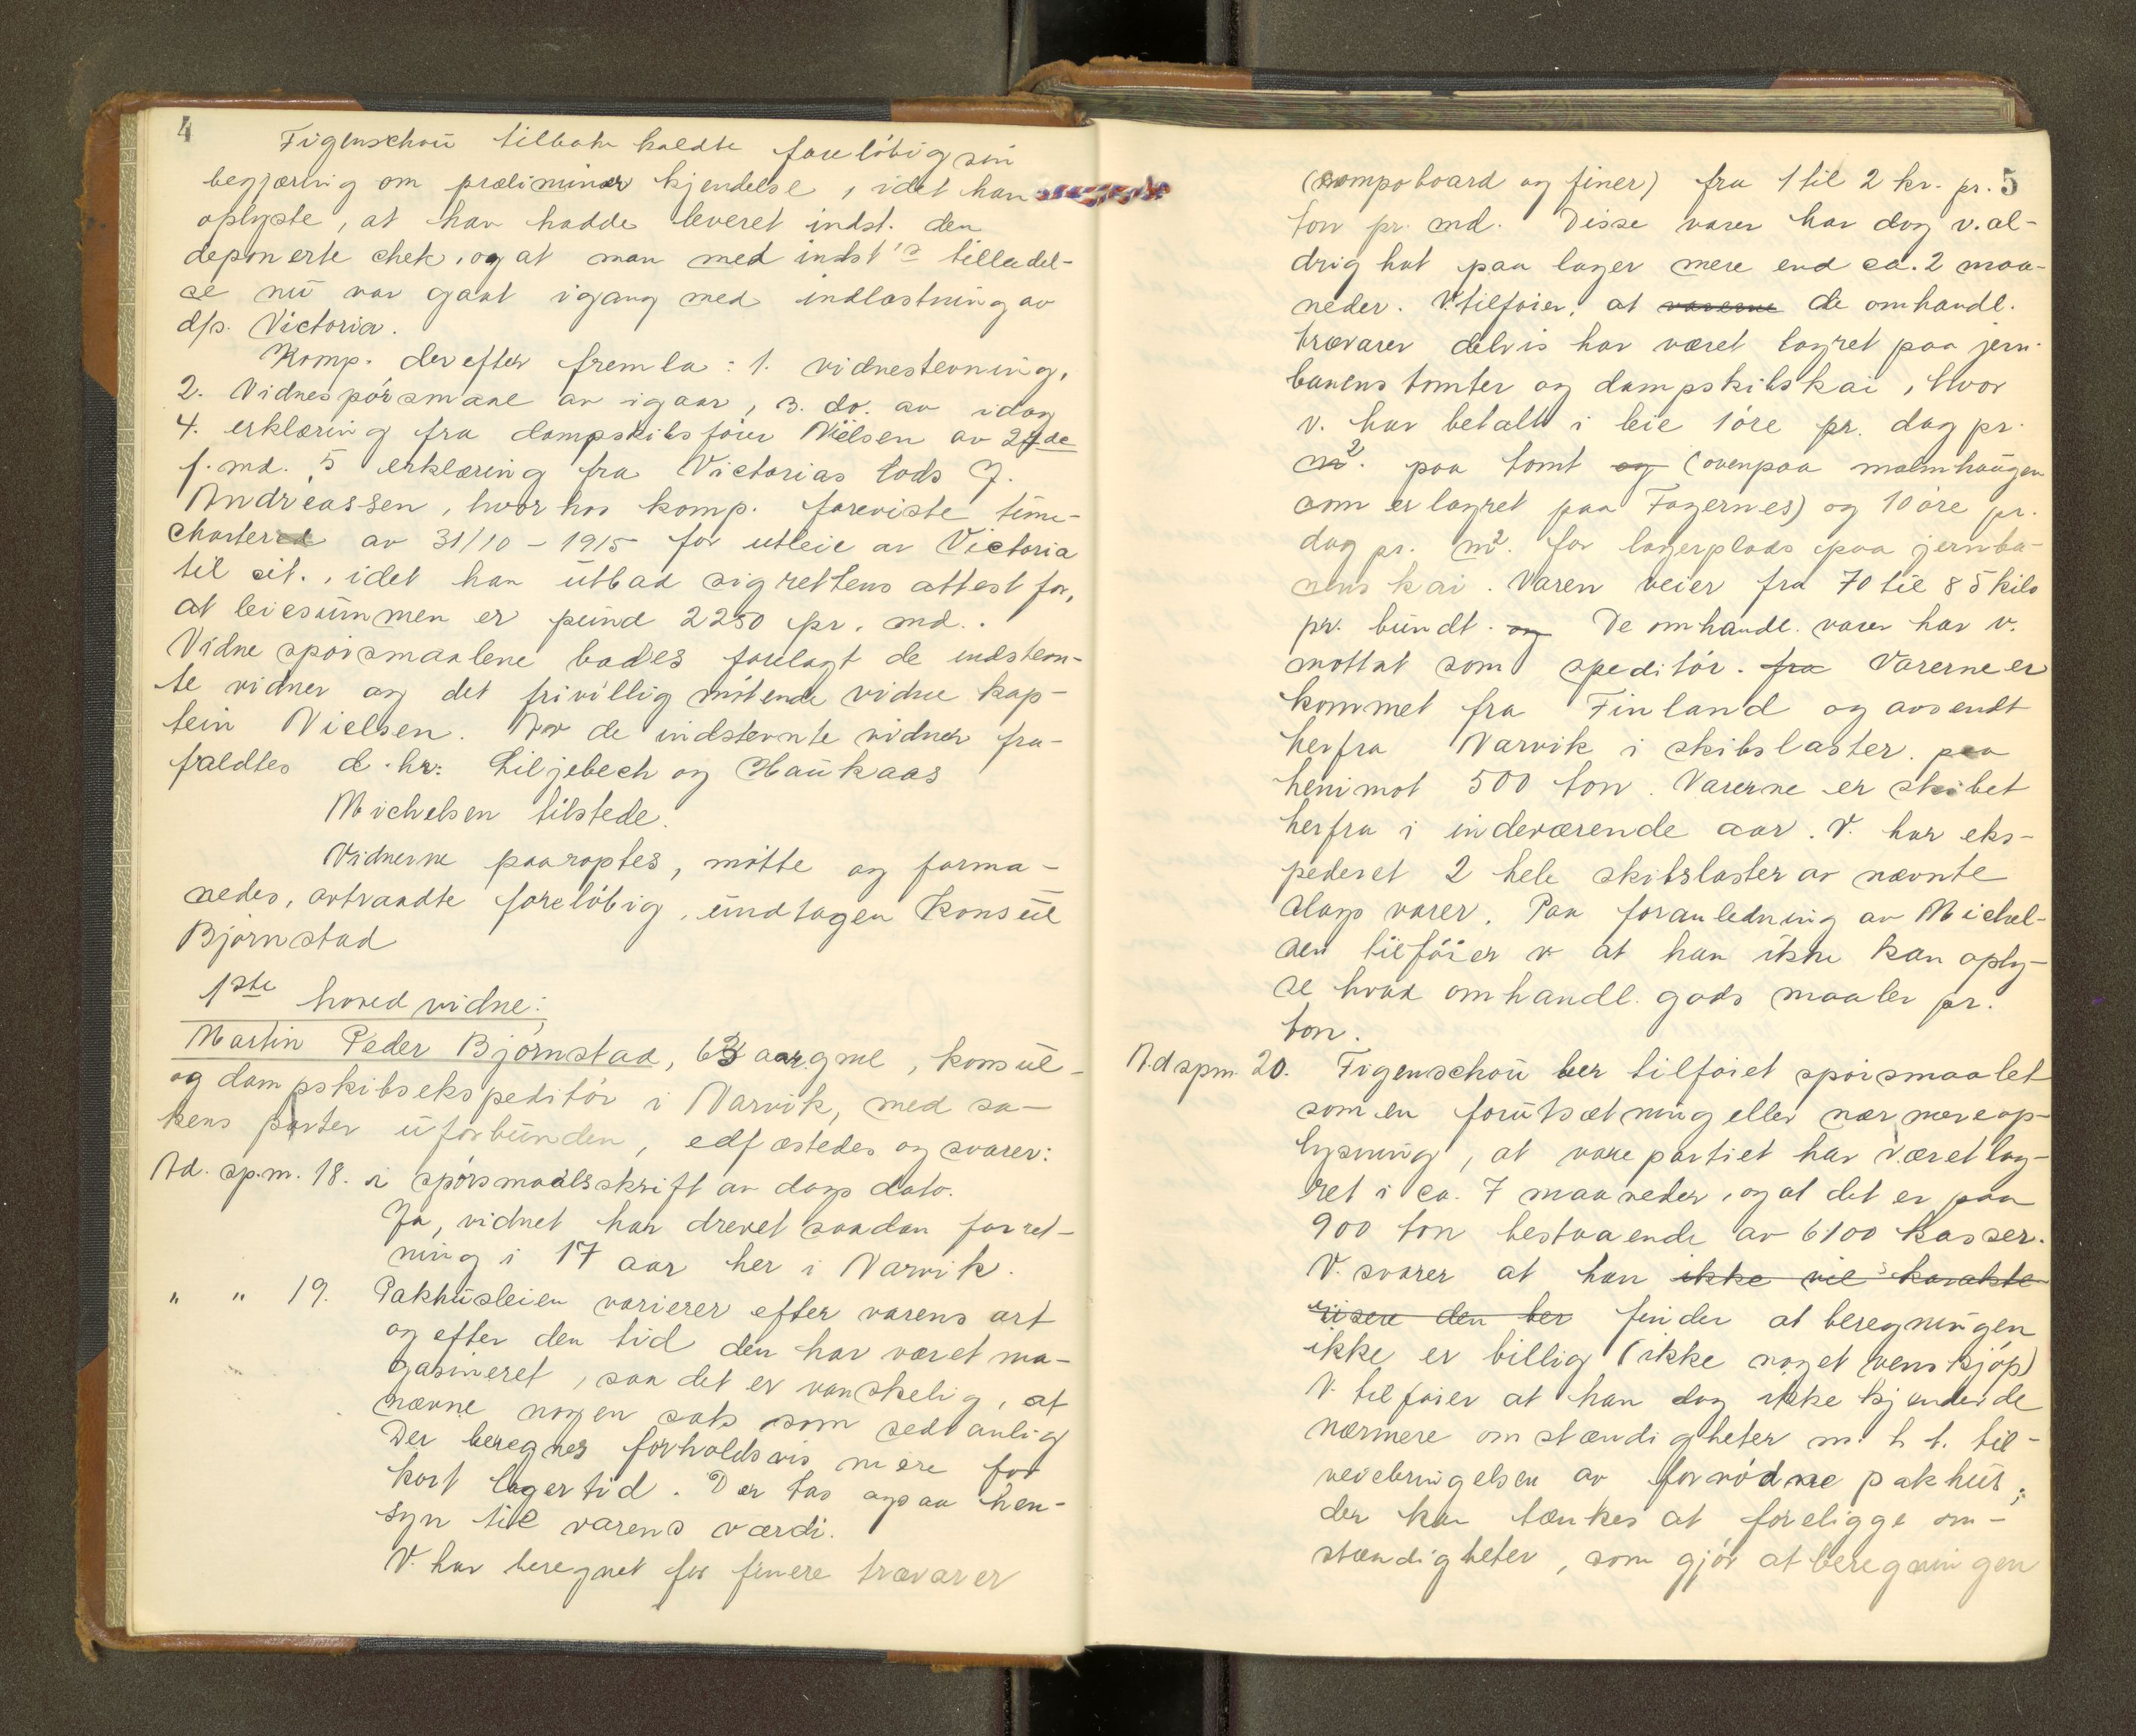 4
Figenschou tilbakeholdte foreløbig sin
begjæring om præliminær kjendelse, idet han
oplyste, at han hadde leveret indst. den
deponerte chek, og at man med indst's tilladel-
se nu var gaat igang med indlastning av
d/s. Victoria.
Komp. derefter fremla: 1. vidnestevning,
2. Vidnespørsmaal av igaar, 3. do. av idag
4. erklæring fra dampskibsfører Nielsen av 27de
f. md. 5 erklæring fra Victorias lods J.
Andreassen, hvorhos komp. foreviste time-
charter av 31/10-1915 for utleie av Victoria
til cit., idet han utbad sig rettens attest for,
at leiesummen er pund 2250 pr. md..
Vidnespørsmaalene bades forelagt de indstevn-
te vidner og det frivillig møtende vidne kap-
tein Nielsen. Av de indstevnte vidner fra-
faldtes d.hr: Liljebech og Haukaas
Michelsen tilstede.
Vidnerne paaroptes, møtte og forma-
nedes, avtraadte foreløbig, undtagen konsul
Bjørnstad
1ste hovedvidne:
Martin Peder Bjørnstad, 63 aar gml, konsul
og dampskibsekspeditør i Narvik, med sa-
kens parter uforbunden, edfæstedes og svarer:
Ad. sp.m. 18. i spørsmaalsskrift av dags dato.
Ja, vidnet har drevet saadan forret-
ning i 17 aar her i Narvik.
" " 19. Pakhusleien varierer efter varens art
og efter den tid den har været ma-
gasineret, saa det er vanskelig, at
nævne nogen sats som sedvanlig
Der beregnes forholdsvis mere for
kort lagertid. Der tas ogsaa hen-
syn til varens værdi.
V. har beregnet for finere trævarer
5
(compoboard og finer) fra 1 til 2 kr. pr.
ton pr. md. Disse varer har dog v. al-
drig hat paa lager mere end ca. 2 maa-
neder. V. tilføier, at varerne de omhandl.
trævarer delvis har været lagret paa jern-
banens tomter og dampskibskai, hvor
v. har betalt i leie 1 øre pr. dag pr.
m2. paa tomt og (ovenpaa malmhaugen
som er lagret paa Fagernes) og 10 øre pr.
dag pr. m2. for lagerplads paa jernba-
nens kai. Varen veier fra 70 til 85 kilo
pr. bundt. og De omhandl. varer har v.
mottat som speditør. fra Varerne er
kommet fra Finland og avsendt
herfra Narvik i skibslaster. paa
henimot 500 ton. Varerne er skibet
herfra i indeværende aar. V. har eks-
pederet 2 hele skibslaster av nævnte
slags varer. Paa foranledning av Michel-
sen tilføier v. at han ikke kan oply-
se hvad omhandl. gods maaler pr.
ton.
Ad spm. 20. Figenschou ber tilføiet spørsmaalet
som en forutsætning eller nærmere op-
lysning, at varepartiet har været lag-
ret i ca. 7 maaneder, og at det er paa
900 ton bestaaende av 6100 kasser.
V. svarer at han ikke vil karakte-
risere den ber finder at beregningen
ikke er billig (ikke noget venskjøp)
V. tilføier at han dog ikke kjender de
nærmere omstændigheter m. h. t. til-
veiebringelsen av fornødne pakhus;
der kan tænkes at foreligge om-
stændigheter, som gjør at beregningen